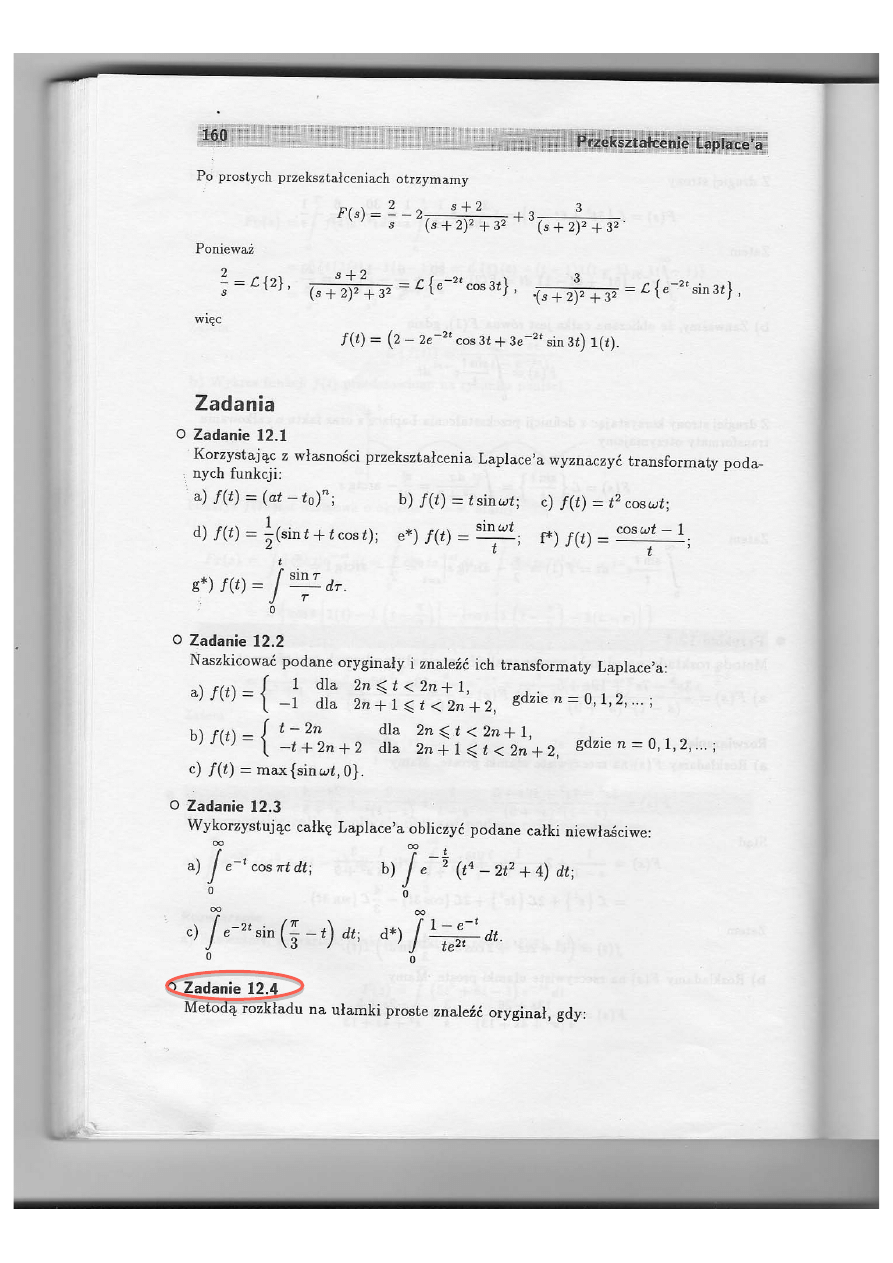 160 Przekształcenie Laplace'a
Po prostych przekształceniach otrzymamy
F(s) = 2/s − 2 (s + 2)/((s + 2)² + 3²) + 3 3/((s + 2)² + 3²).
Ponieważ
2/s = ℒ{2}, (s + 2)/((s + 2)² + 3²) = ℒ{e^{−2t} cos 3t}, 3/((s + 2)² + 3²) = ℒ{e^{−2t} sin 3t},
więc
f(t) = (2 − 2e^{−2t} cos 3t + 3e^{−2t} sin 3t) 1(t).
Zadania
○ Zadanie 12.1
Korzystając z własności przekształcenia Laplace'a wyznaczyć transformaty poda-
nych funkcji:
a) f(t) = (at − t₀)ⁿ; b) f(t) = t sin ωt; c) f(t) = t² cos ωt;
d) f(t) = 1/2 (sin t + t cos t); e*) f(t) = sin ωt / t; f*) f(t) = (cos ωt − 1)/t;
g*) f(t) = ∫₀ᵗ (sin τ / τ) dτ.
○ Zadanie 12.2
Naszkicować podane oryginały i znaleźć ich transformaty Laplace'a:
a) f(t) = { 1 dla 2n ⩽ t < 2n + 1,
−1 dla 2n + 1 ⩽ t < 2n + 2, gdzie n = 0, 1, 2, ... ;
b) f(t) = { t − 2n dla 2n ⩽ t < 2n + 1,
−t + 2n + 2 dla 2n + 1 ⩽ t < 2n + 2, gdzie n = 0, 1, 2, ... ;
c) f(t) = max {sin ωt, 0}.
○ Zadanie 12.3
Wykorzystując całkę Laplace'a obliczyć podane całki niewłaściwe:
a) ∫₀^∞ e^{−t} cos πt dt; b) ∫₀^∞ e^{−t/2} (t⁴ − 2t² + 4) dt;
c) ∫₀^∞ e^{−2t} sin (π/3 − t) dt; d*) ∫₀^∞ (1 − e^{−t})/(te^{2t}) dt.
○ Zadanie 12.4
Metodą rozkładu na ułamki proste znaleźć oryginał, gdy: